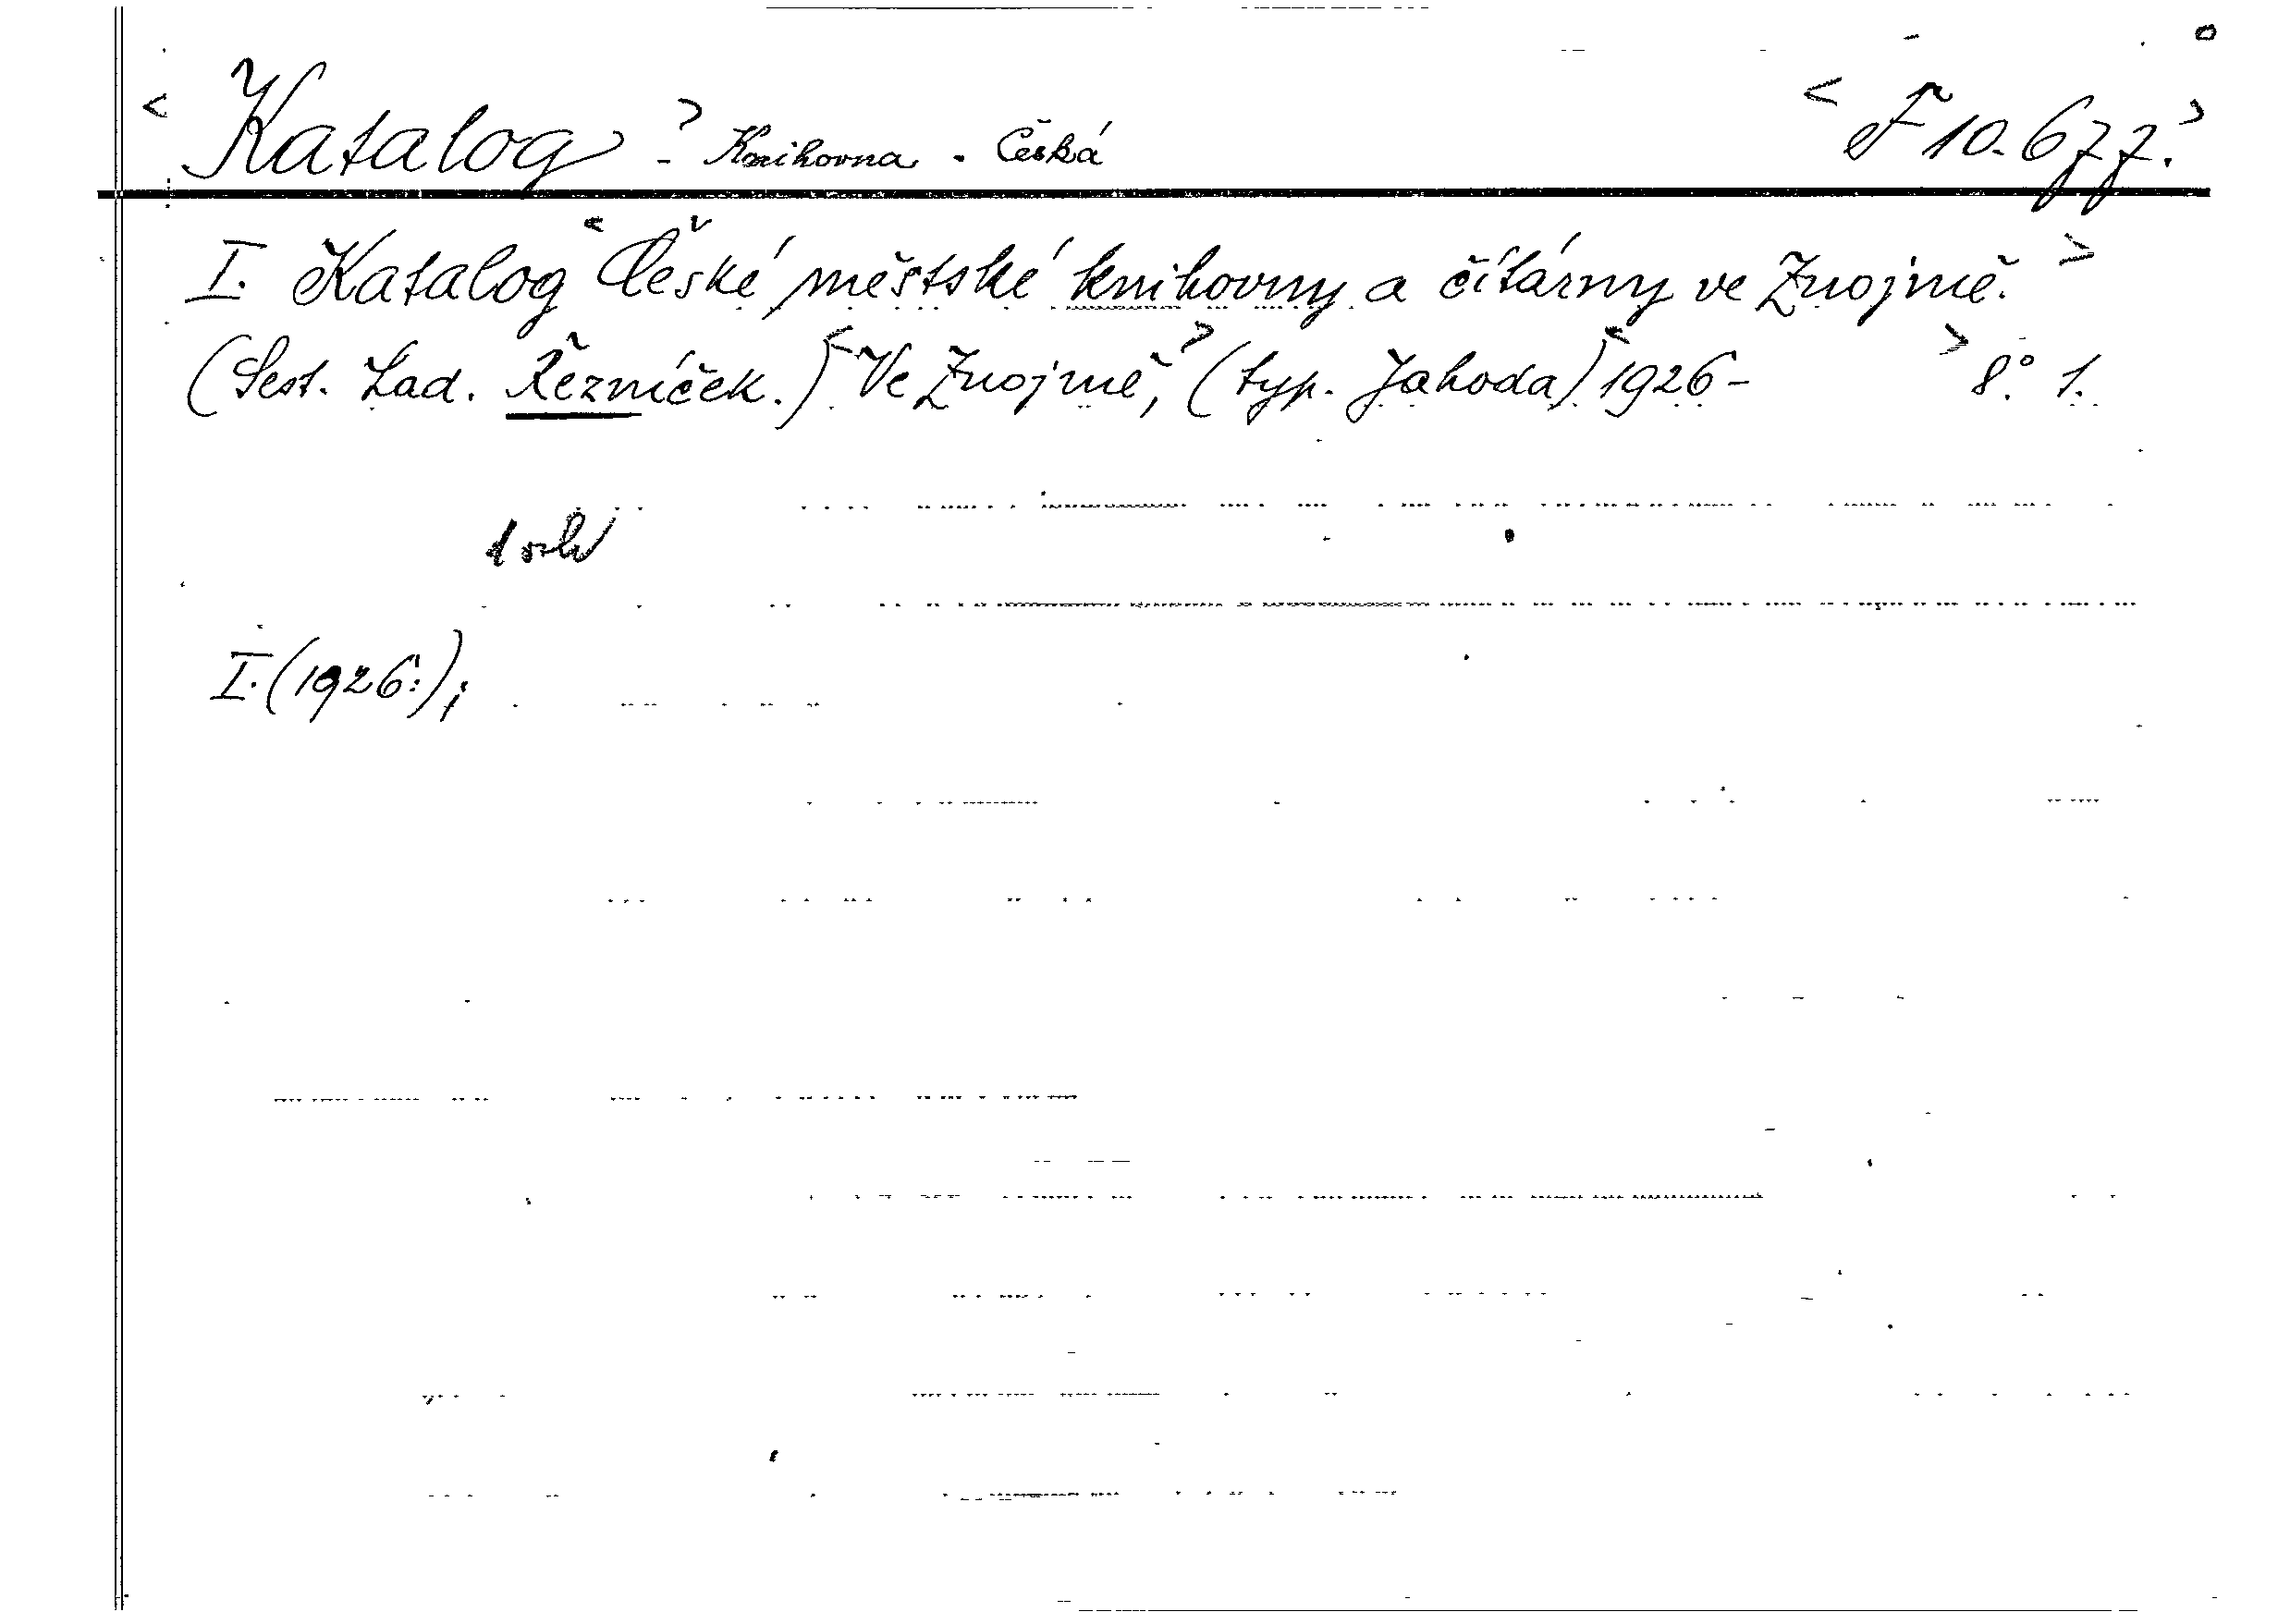 < Katalog > - Knihovna - Česká < F 10.677. >
I. Katalog < České městské knihovny a čítárny ve Znojmě. >
(Sest. Lad. Řezníček.) < Ve Znojmě, > (typ. Jahoda) < 1926- > 8° 1.
I. (1926:);